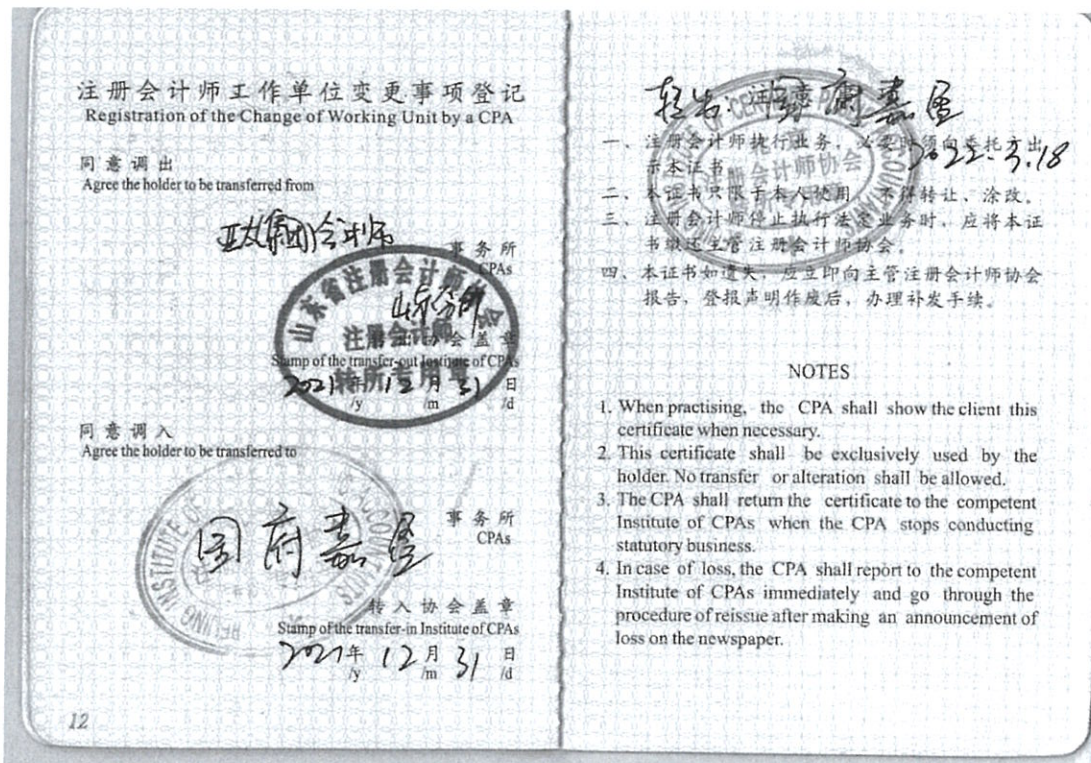 注册会计师工作单位变更事项登记
Registration of the Change of Working Unit by a CPA
同意调出
Agree the holder to be transferred from
亚太集团会计师
事务所
CPAs
山东分所
山东省注册会计师协会
注册会计师
转所专用章
协会盖章
Stamp of the transfer-out Institute of CPAs
2021年12月31日
/y /m /d
同意调入
Agree the holder to be transferred to
国府嘉盈
事务所
CPAs
BEIJING INSTITUTE OF
ACCOUNTANTS
转入协会盖章
Stamp of the transfer-in Institute of CPAs
2021年12月31日
/y /m /d
12
国府嘉盈
2022.3.18
一、注册会计师执行业务，必要时须向委托方出
示本证书。
二、本证书只限于本人使用，不得转让、涂改。
三、注册会计师停止执行法定业务时，应将本证
书缴还主管注册会计师协会。
四、本证书如遗失，应立即向主管注册会计师协会
报告，登报声明作废后，办理补发手续。
NOTES
1. When practising, the CPA shall show the client this
certificate when necessary.
2. This certificate shall be exclusively used by the
holder. No transfer or alteration shall be allowed.
3. The CPA shall return the certificate to the competent
Institute of CPAs when the CPA stops conducting
statutory business.
4. In case of loss, the CPA shall report to the competent
Institute of CPAs immediately and go through the
procedure of reissue after making an announcement of
loss on the newspaper.